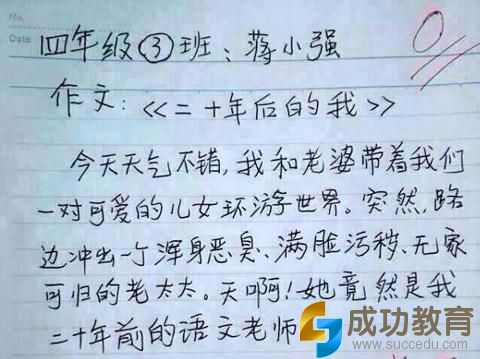 No.
Date
0
四年级③班：蒋小强
作文：《二十年后的我》
今天天气不错，我和老婆带着我们
一对可爱的儿女环游世界。突然，路
边冲出一个浑身恶臭、满脸污秽、无家
可归的老太太。天啊！她竟然是我
二十年前的语文老师
成功教育
www.succedu.com